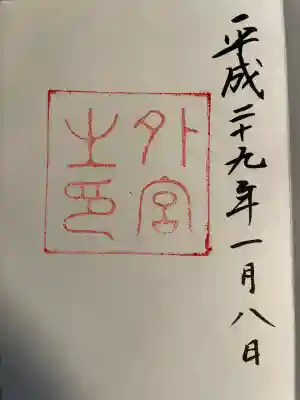 平成二十九年一月八日
外宮
之印